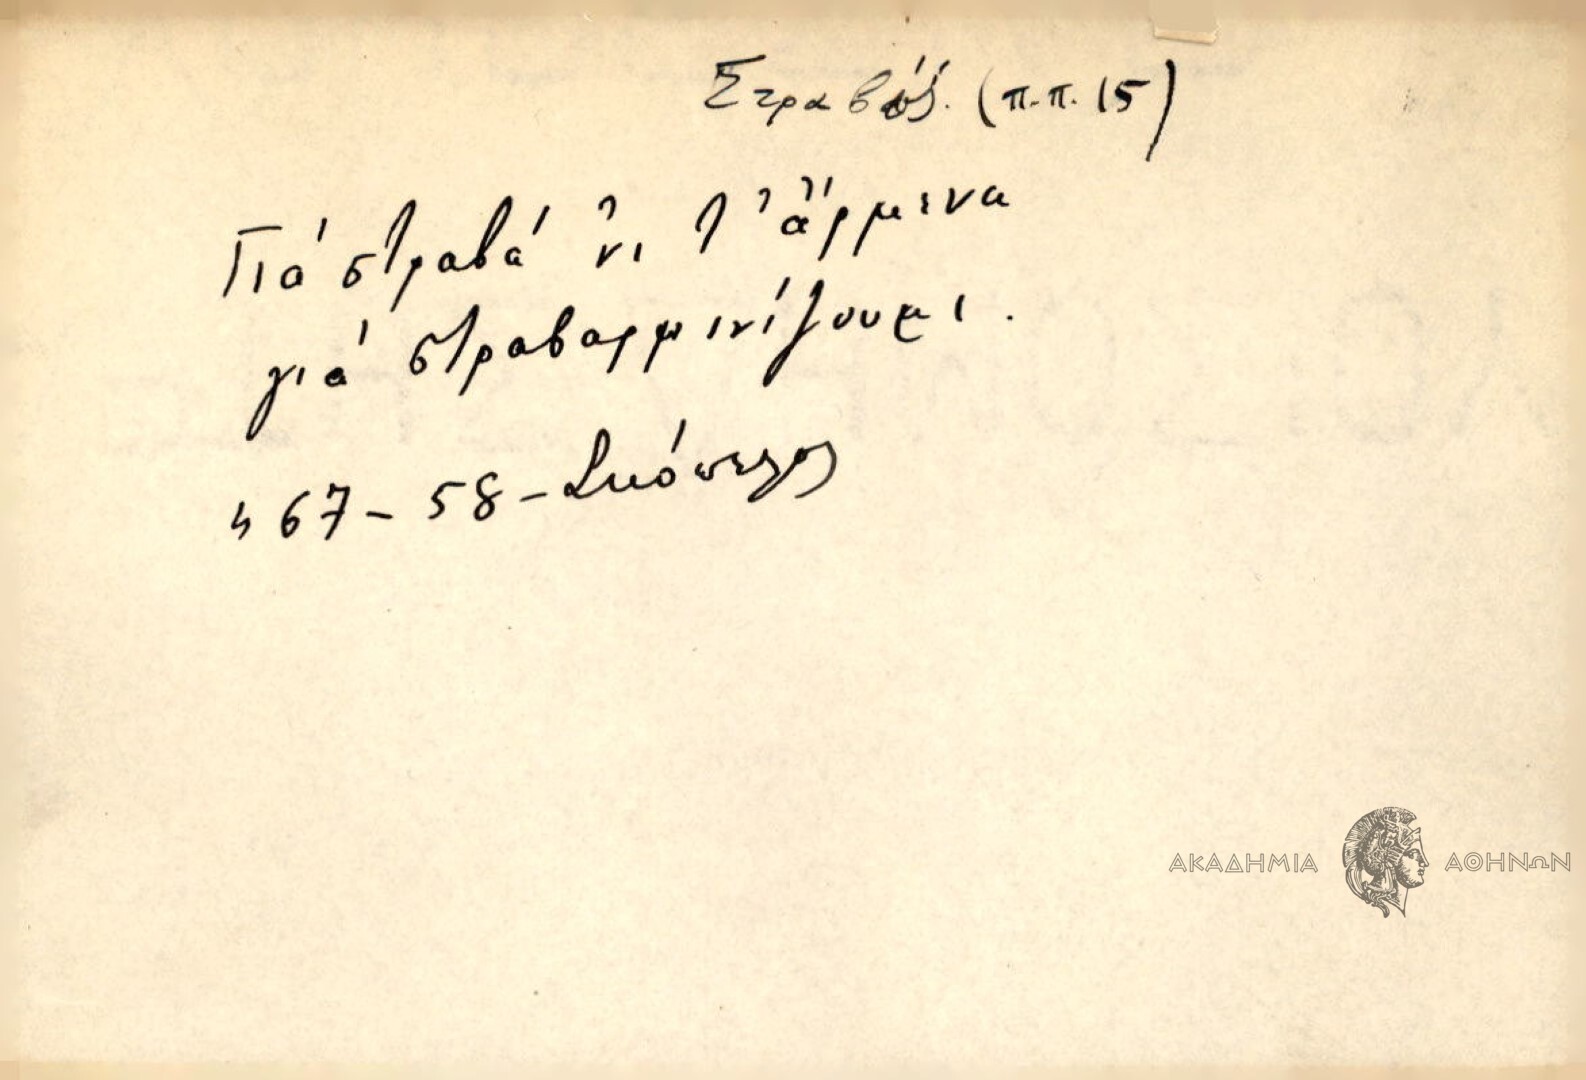 Στραβός. (π.π. 15)
Γιά στραβά 'νι τ' ἄρμινα
γιά στραβαρμινίζουμι.
467 - 58 - Σκόπελος
ΑΚΑΔΗΜΙΑ ΑΘΗΝΩΝ